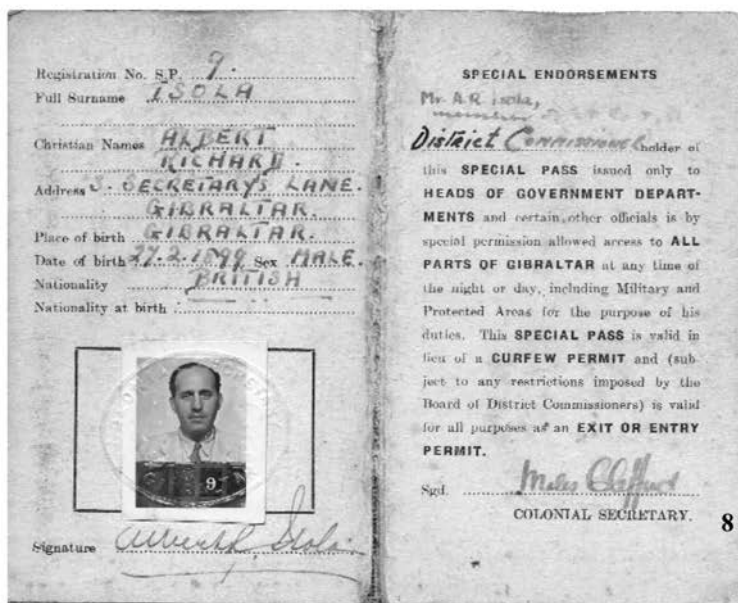 Registration No. S.P. 9.
Full Surname ISOLA
Christian Names ALBERT
RICHARD.
Address 3. SECRETARY'S LANE.
GIBRALTAR.
Place of birth GIBRALTAR.
Date of birth 27.2.1899 Sex MALE.
Nationality BRITISH
Nationality at birth
9
Signature Albert R. Isola
SPECIAL ENDORSEMENTS
Mr. A.R Isola,
District Commissioner holder of
this SPECIAL PASS issued only to
HEADS OF GOVERNMENT DEPART-
MENTS and certain other officials is by
special permission allowed access to ALL
PARTS OF GIBRALTAR at any time of
the night or day, including Military and
Protected Areas for the purpose of his
duties. This SPECIAL PASS is valid in
lieu of a CURFEW PERMIT and (sub-
ject to any restrictions imposed by the
Board of District Commissioners) is valid
for all purposes as an EXIT OR ENTRY
PERMIT.
Sgd. Miles Clifford
COLONIAL SECRETARY.
8